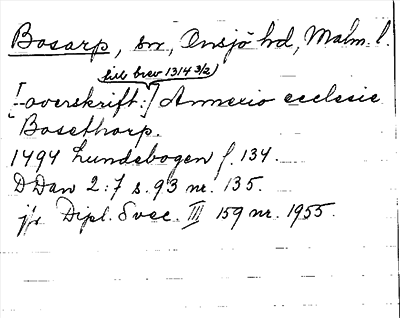 Bosarp, sn, Onsjö hd, Malm. l.
till brev 1314 3/2
[-overskrift:] Annexio ecclesie
Bosethorp.
1494 Lundebogen f. 134.
DDan 2:7 s. 93 nr. 135.
jfr Dipl. Svec. III 159 nr. 1955.